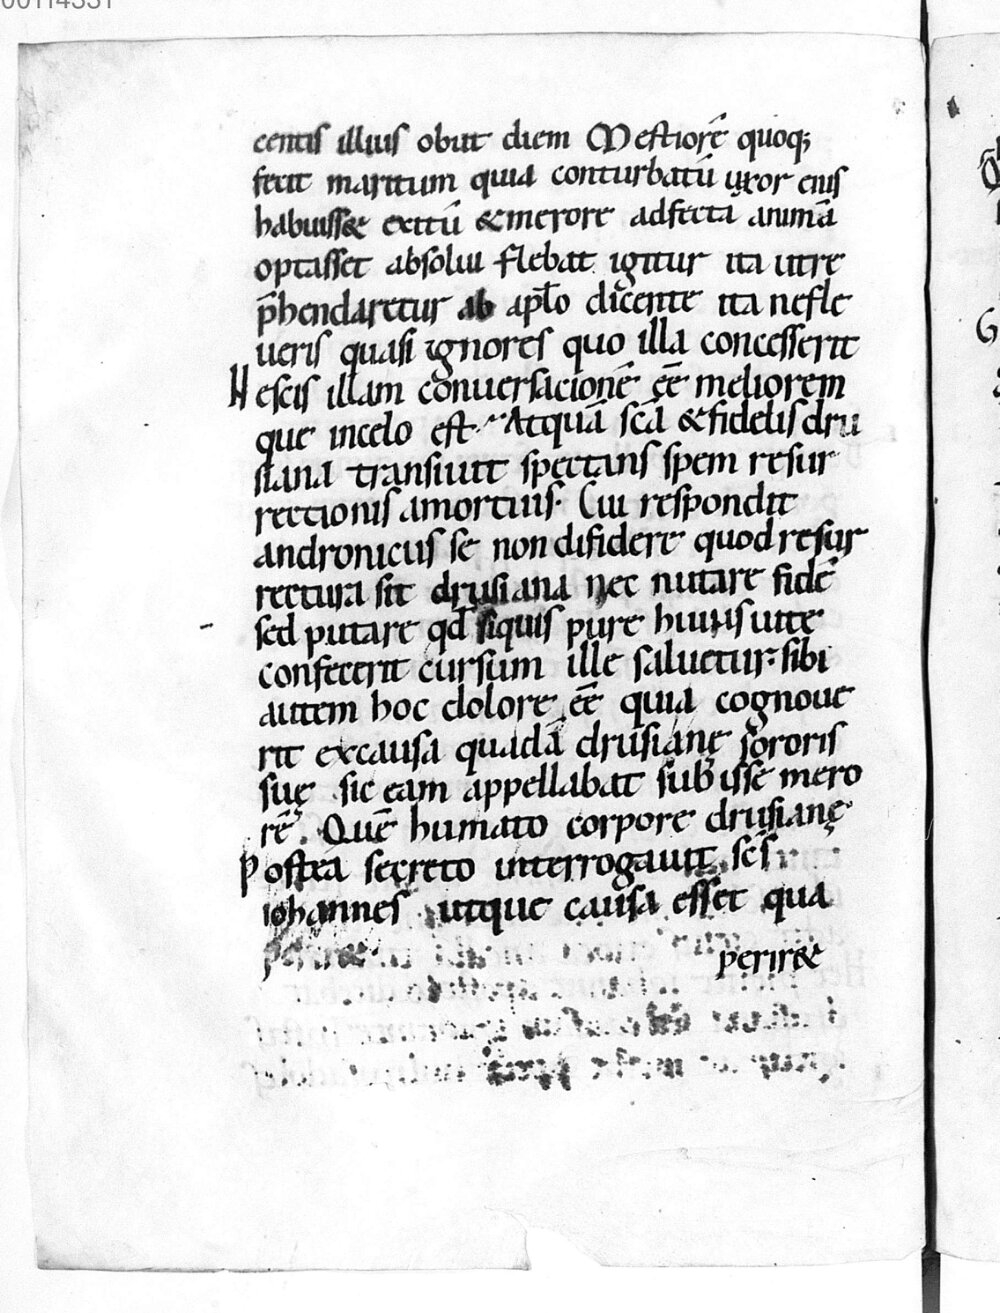 00114331
centis illius obiit diem Mestiorē quoq;
fecit maritum quia conturbatū uxor eius
habuiss& exitū & merore adfecta animā
optasset absolui flebat igitur ita ut re
p̄henderetur ab apl̄o dicente ita ne fle
ueris quasi ignores quo illa concesserit
Nescis illam conuersacionē eē meliorem
que incelo est Atquā scā & fidelis dru
siana transiuit spectans spem resur
rectionis amortuis. Cui respondit
andronicus se non difidere quod resur
rectura sit drusiana nec nutare fidē
sed putare qd̄ siquis pure huius uite
confecerit cursum ille saluetur: sibi
autem hoc dolore eē quia cognoue
rit excausa quadā drusianę sororis
suę sic eam appellabat subisse mero
rē. Quē humato corpore drusianę
Postea secreto interrogauit scs̄
iohannes utque causa esset qua
perir&